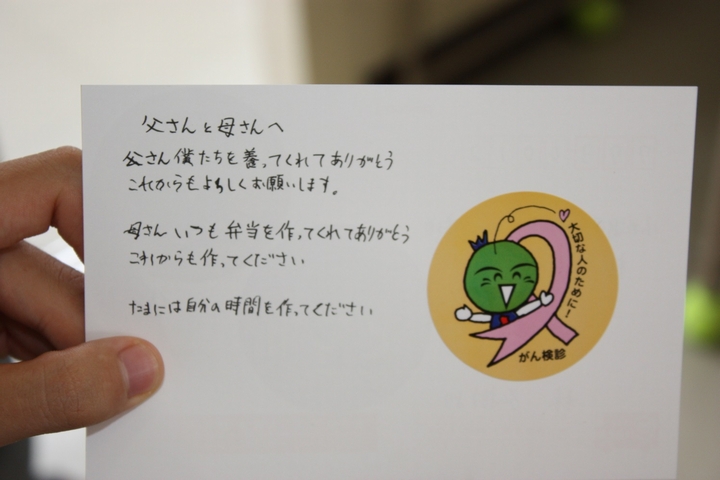 父さんと母さんへ
父さん僕たちを養ってくれてありがとう
これからもよろしくお願いします。
母さんいつも弁当を作ってくれてありがとう
これからも作ってください
たまには自分の時間を作ってください
大切な人のために!
がん検診